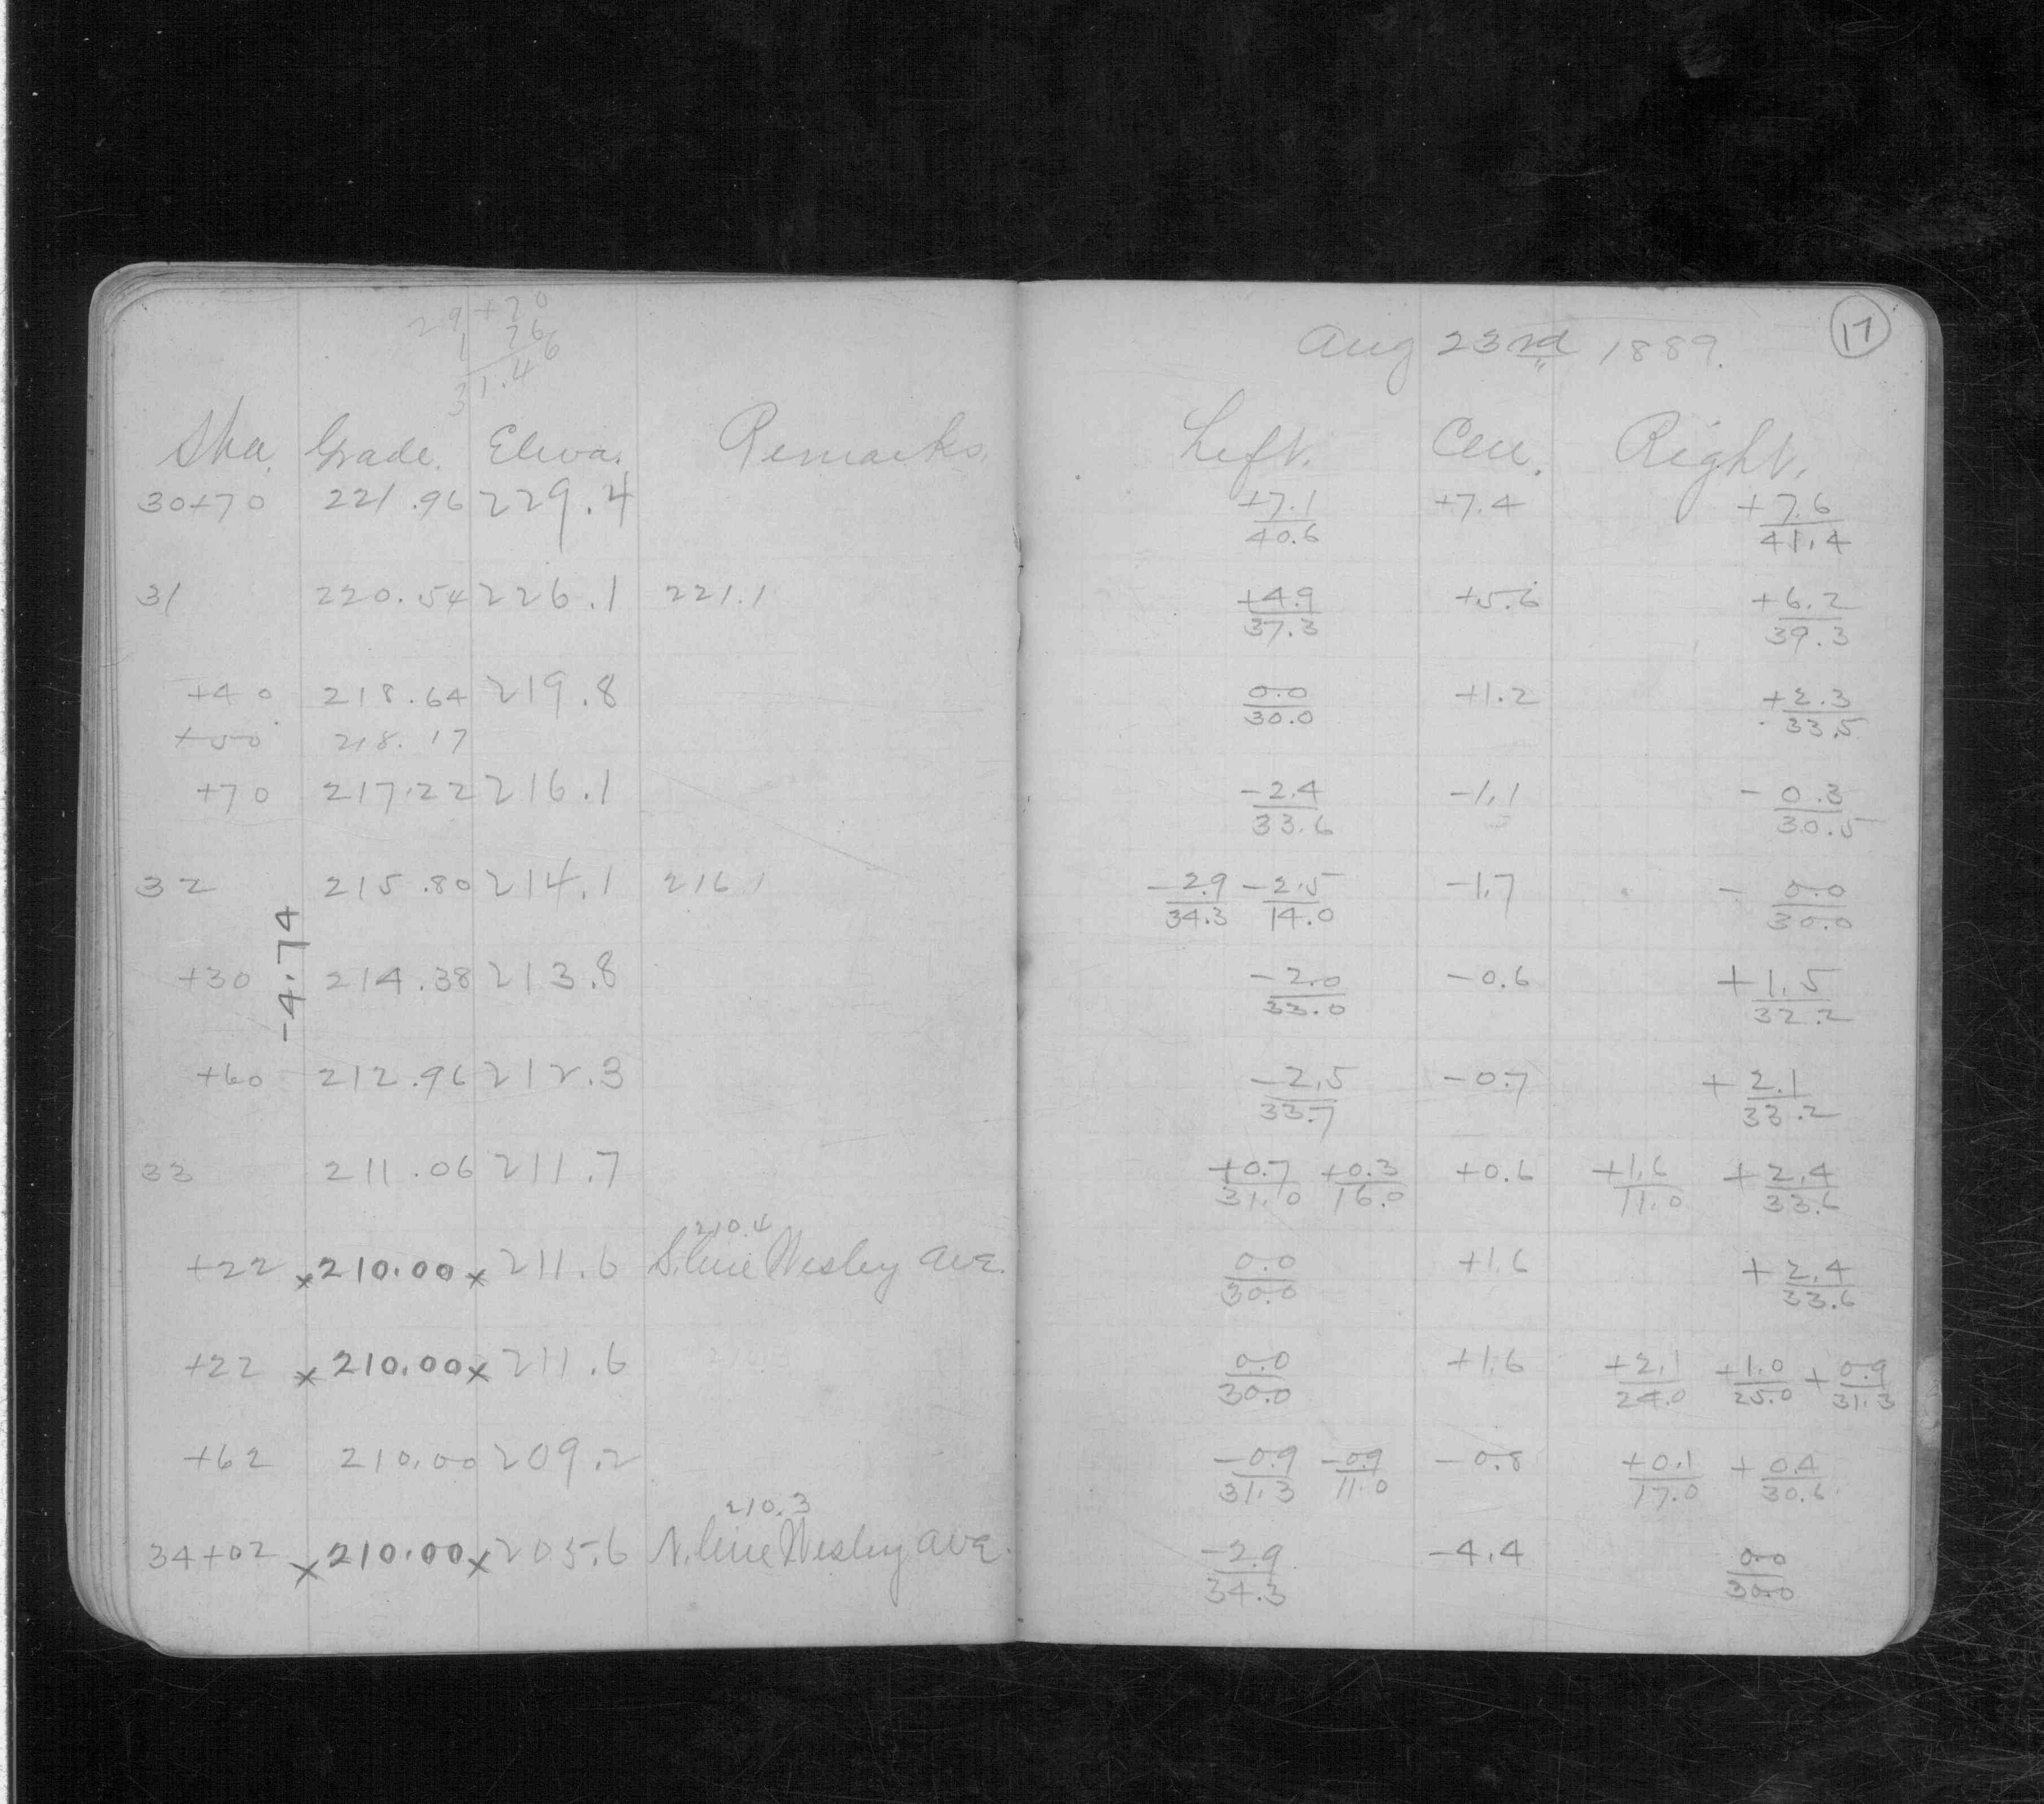 29+20
1 26
31.46
Aug 23rd 1889. 17
Sta. Grade. Eleva. Remarks. Left. Cen. Right.
30+70 221.96 229.4 +7.1/40.6 +7.4 +7.6/41.4
31 220.54 226.1 221.1 +4.9/37.3 +5.6 +6.2/39.3
+40 218.64 219.8 0.0/30.0 +1.2 +2.3/33.5
+50 218.17
+70 217.22 216.1 -2.4/33.6 -1.1 -0.3/30.5
32 215.80 214.1 216.1 -2.9/34.3 -2.5/14.0 -1.7 - 0.0/30.0
-4.74
+30 214.38 213.8 -2.0/33.0 -0.6 +1.5/32.2
+60 212.96 212.3 -2.5/33.7 -0.7 +2.1/33.2
33 211.06 211.7 +0.7/31.0 +0.3/16.0 +0.6 +1.6/11.0 +2.4/33.6
210.4
+22 x 210.00 x 211.6 S. line Wesley Ave. 0.0/30.0 +1.6 +2.4/33.6
+22 x 210.00 x 211.6 0.0/30.0 +1.6 +2.1/24.0 +1.0/25.0 +0.9/31.3
+62 210.00 209.2 -0.9/31.3 -0.9/11.0 -0.8 +0.1/17.0 +0.4/30.6
210.3
34+02 x 210.00 x 205.6 N. line Wesley Ave. -2.9/34.3 -4.4 0.0/30.0